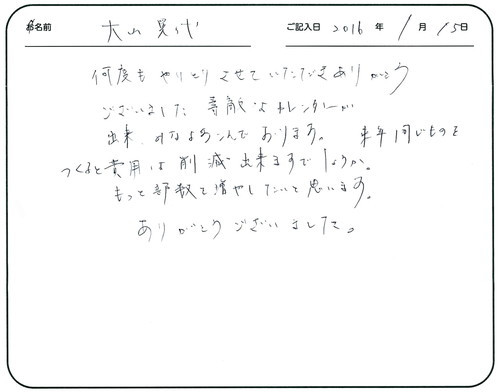 お名前 大山 美代 ご記入日 2016 年 1 月 15 日
何度も やりとり させて いただき あり がとう
ございました 素敵な カレンダーが
出来、みなよろこんで おります。 来年 同じものを
つくると 費用は 削減 出来ますでしょうか。
もっと 部数を 増やしたいと 思います。
ありがとう ございました。